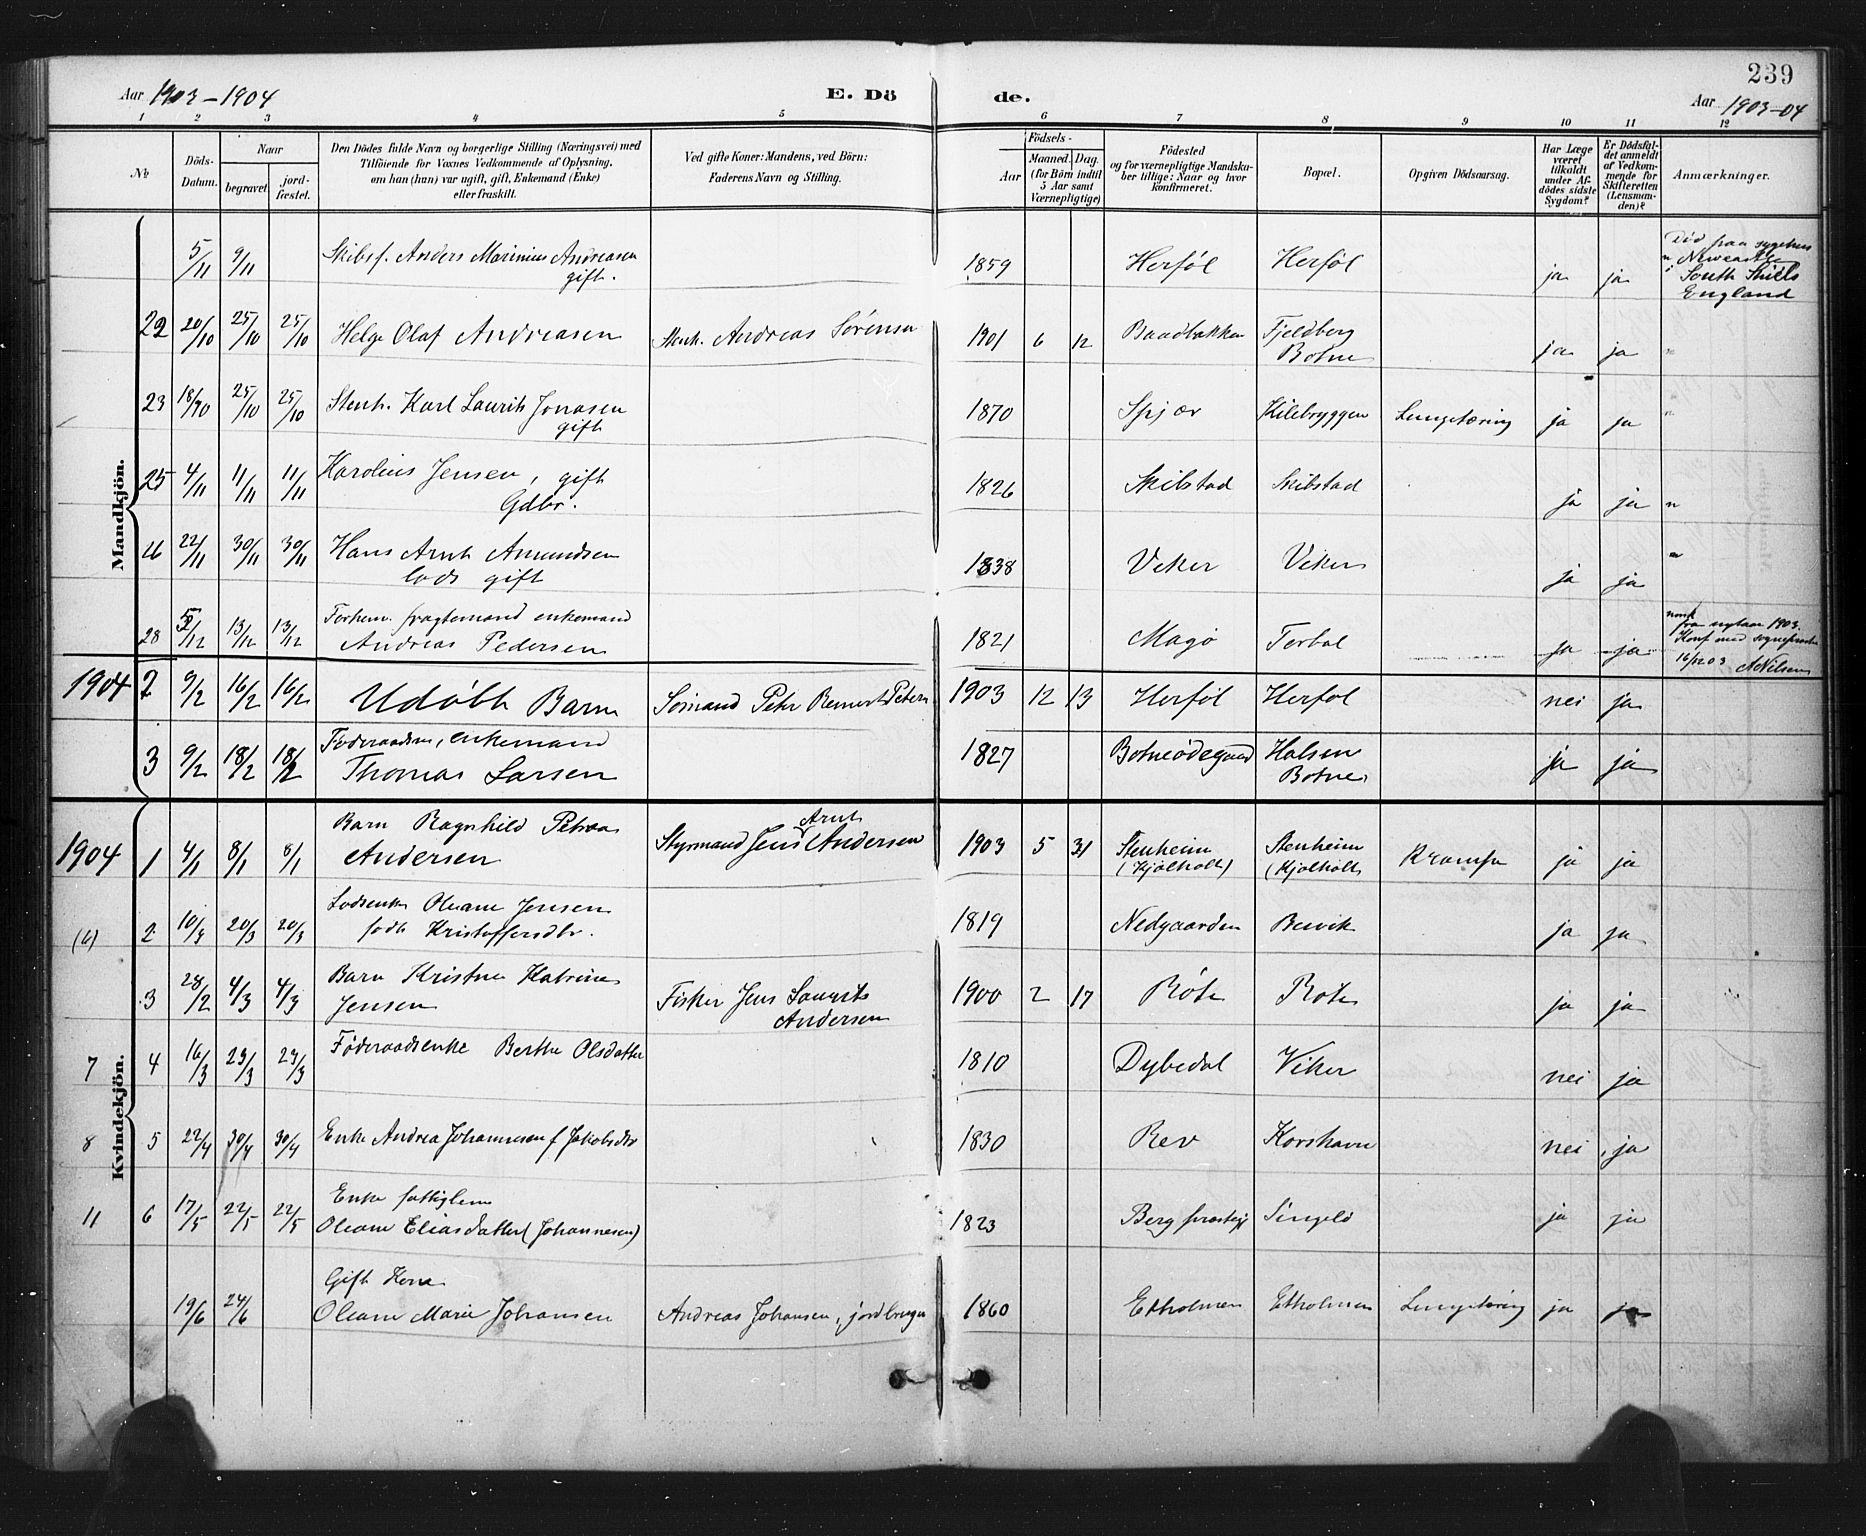 239
Aar 1903-1904
E. Dö
de.
Aar 1903-04
1 2 3 4 5 6 7 8 9 10 11 12
No
Döds-Datum.
Naar
begravet
jord-fæstet.
Den Dödes fulde Navn og borgerlige Stilling (Næringsvei) med
Tilföiende for Voxnes Vedkommende af Oplysning,
om han (hun) var ugift, gift, Enkemand (Enke)
eller fraskilt.
Ved gifte Koner: Mandens, ved Börn:
Faderens Navn og Stilling.
Födsels-
Aar
Maaned. Dag.
(for Börn indtil
5 Aar samt
Værnepligtige)
Födested
og for værnepligtige Mandska-
ber tillige: Naar og hvor
konfirmeret.
Bopæl.
Opgiven Dödsaarsag.
Har Læge
været
tilkaldt
under Af-
dödes sidste
Sygdom?
Er Dödsfal-
det anmeldt
af Vedkom-
mende for
Skifteretten
(Lensman-
den)?
Anmærkninger.
Mandkjön.
5/11 9/11 Skibsf. Anders Marinius Andreasen
gift.
1859 Herföl Herföl ja ja
Död paa sygehus
Newcastle
South Shiels
England
22 20/10 25/10 25/10 Helge Olaf Andreasen Stenh. Andreas Sörensen 1901 6 12 Baadbakken Fjeldberg
Botne ja ja "
23 18/10 25/10 25/10 Stenh. Karl Laurits Jonasen
gift
1870 Spjær Kilebryggen Lungetæring ja ja "
25 4/11 11/11 11/11 Karolius Jensen, gift
Gdbr.
1826 Skibstad Skibstad ja ja "
26 22/11 30/11 30/11 Hans Arnt Amundsen
lods gift
1838 Veker Viker ja ja "
28 5/12 13/12 13/12 Forhen. fragtemand enkemand
Andreas Pedersen
1821 Magö Torbal ja ja
norsk
fra nytaar 1903.
Konf med sogneprsten
16/12 03 A Nilsen
1904 2 9/2 16/2 16/2 Udöbt Barn Sömand Petr Remert Petersn 1903 12 13 Herföl Herföl nei ja
3 9/2 18/2 18/2 Föderaadsm, enkemand
Thomas Larsen
1827 Botneödegaard Halsen
Botne ja ja
Kvindekjön.
1904 1 4/1 8/1 8/1 Barn Ragnhild Petrea
Andersen
Styrmand Jens Arnt Andersen 1903 5 31 Stenheim
(Kjölholt)
Stenheim
(Kjölholt
Krampe ja ja
(6) 2 10/3 20/3 20/3 Lodsenke Oleane Jensen
födt Kristoffersdtr.
1819 Nedgaarden Besvik ja ja
3 28/2 4/3 4/3 Barn Kristine Katrine
Jensen
Fisker Jens Laurits
Andersen
1900 2 17 Röte Röte ja ja
7 4 16/3 23/3 23/3 Föderaadsenke Berthe Olsdatter 1810 Dybedal Viker nei ja
8 5 22/4 30/4 30/4 Enke Andrea Johannesen f Jakobsdtr 1830 Rev Korshavn nei ja
11 6 17/5 22/5 22/5 Enke fattiglem
Oleane Eliasdatter (Johannesen)
1823 Berg præstegj Singelö ja ja
19/6 24/6 Gift Kone
Oleane Marie Johansen Andreas Johansen, jordbruger 1860 Etholmen Etholmen Lungetæring ja ja